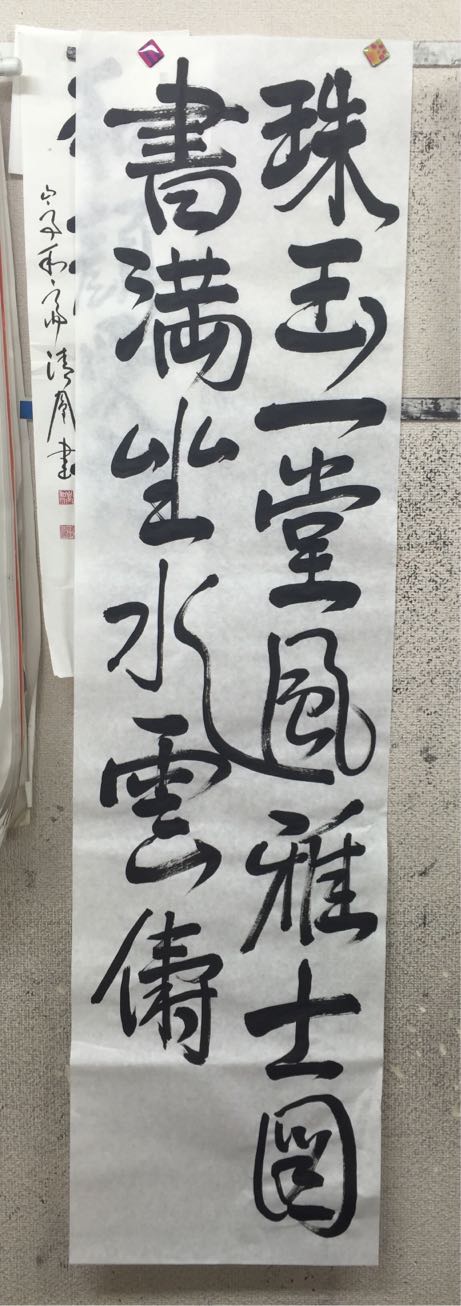 珠玉一堂風雅士圖
書満坐水雲儔
清凰書